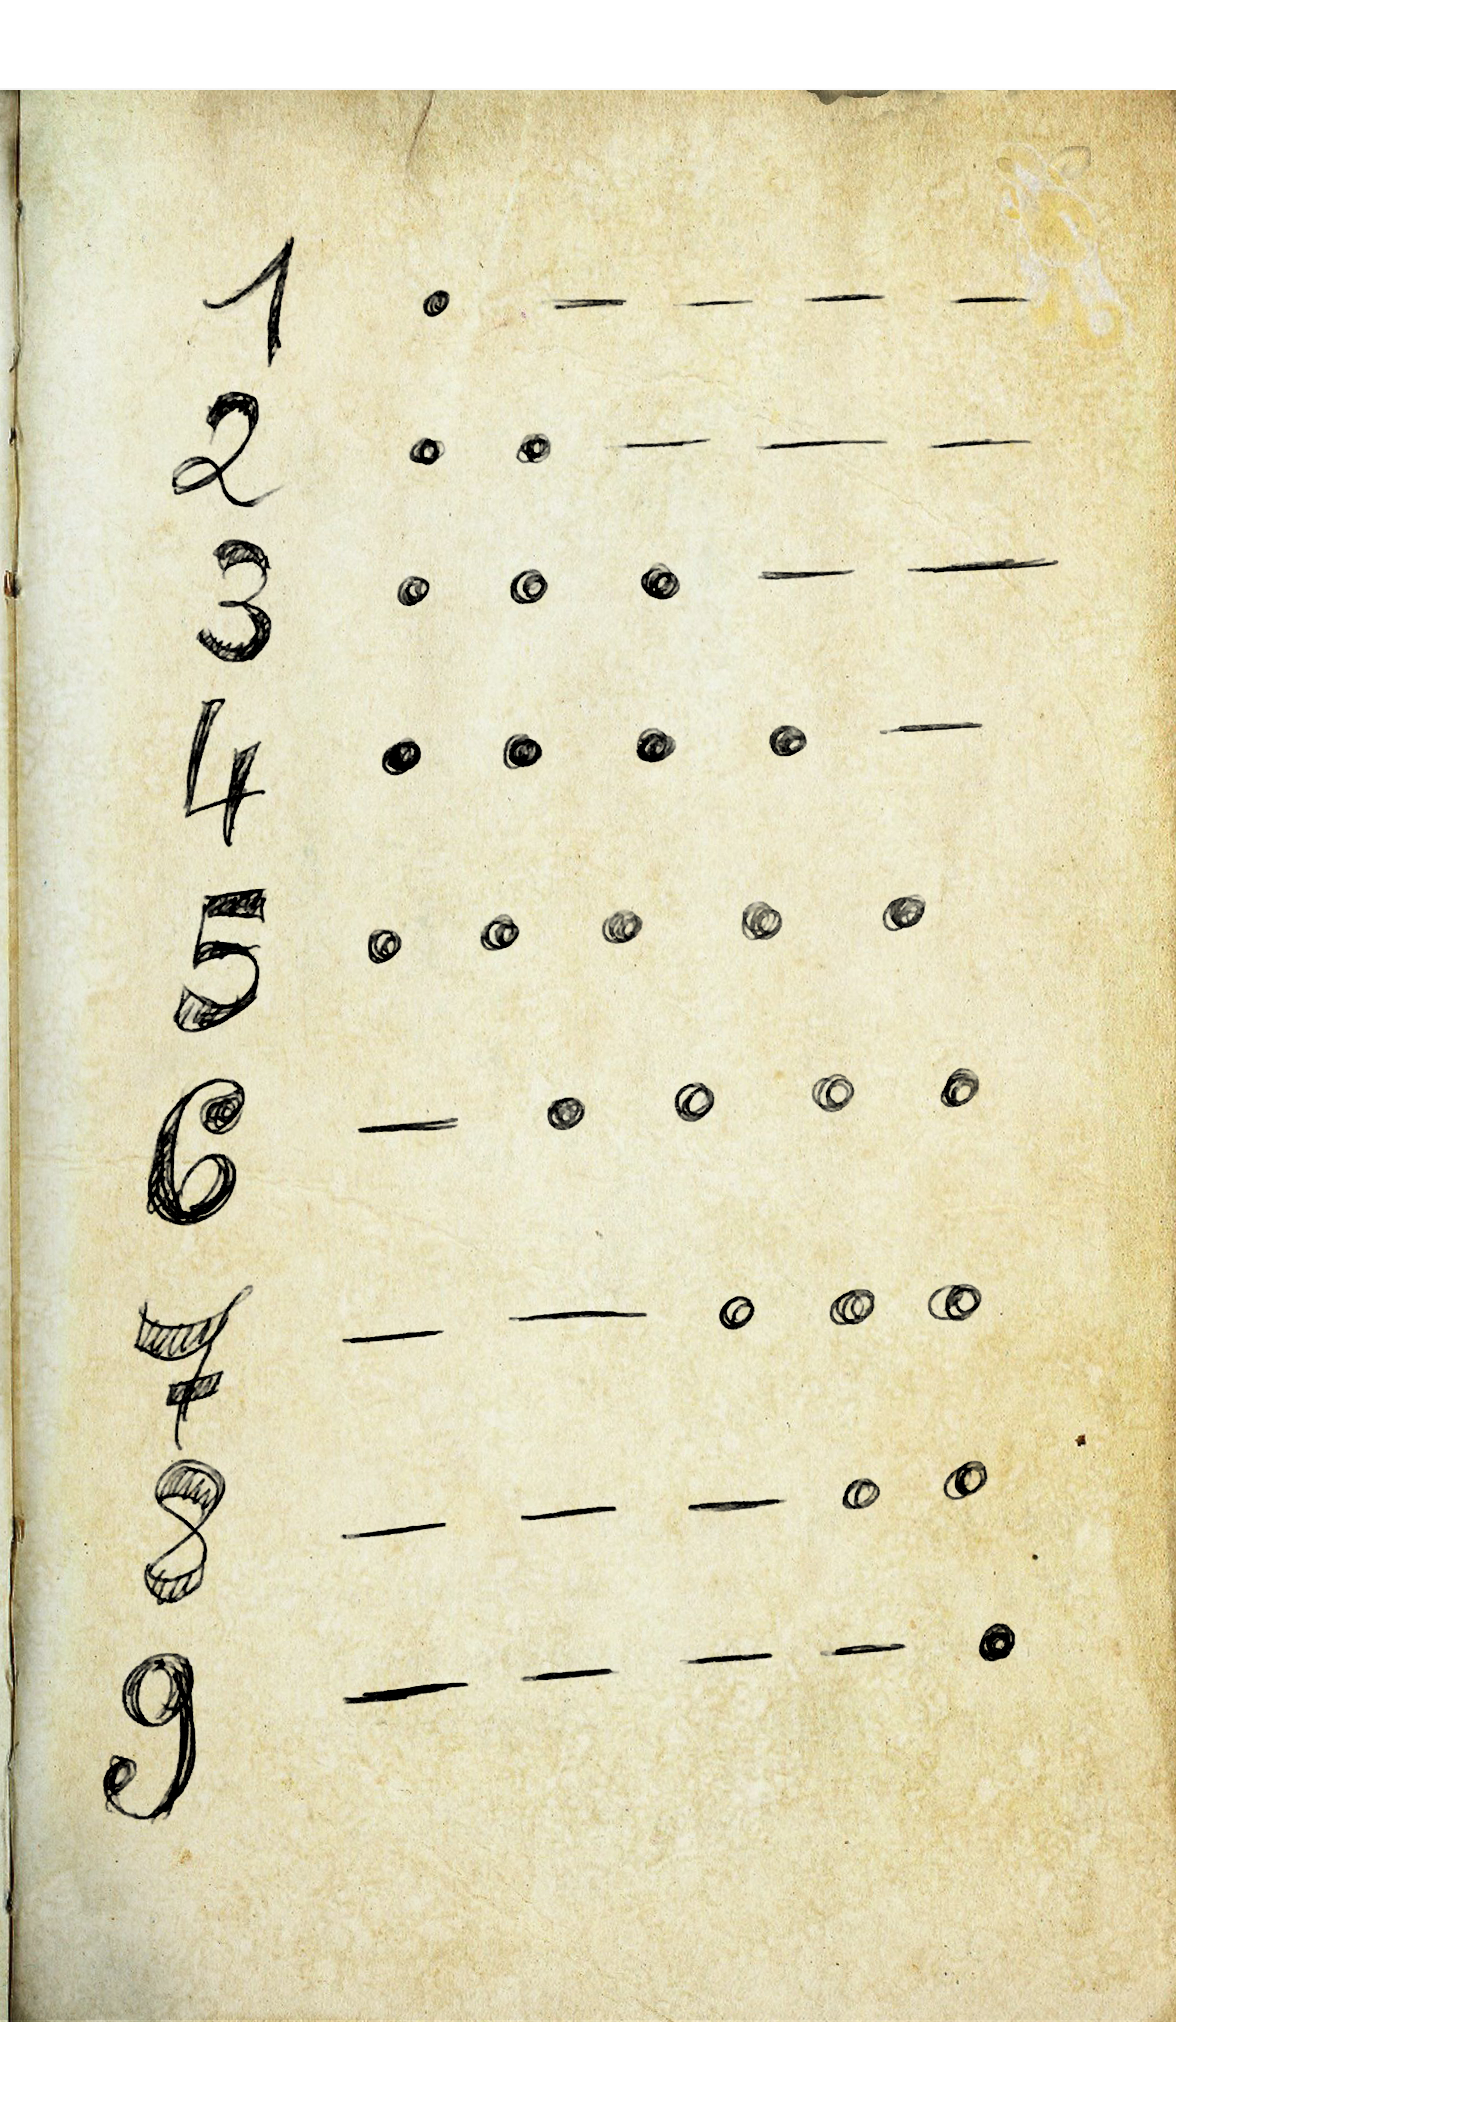 1 • — — — —
2 • • — — —
3 • • • — —
4 • • • • —
5 • • • • •
6 — • • • •
7 — — • • •
8 — — — • •
9 — — — — •